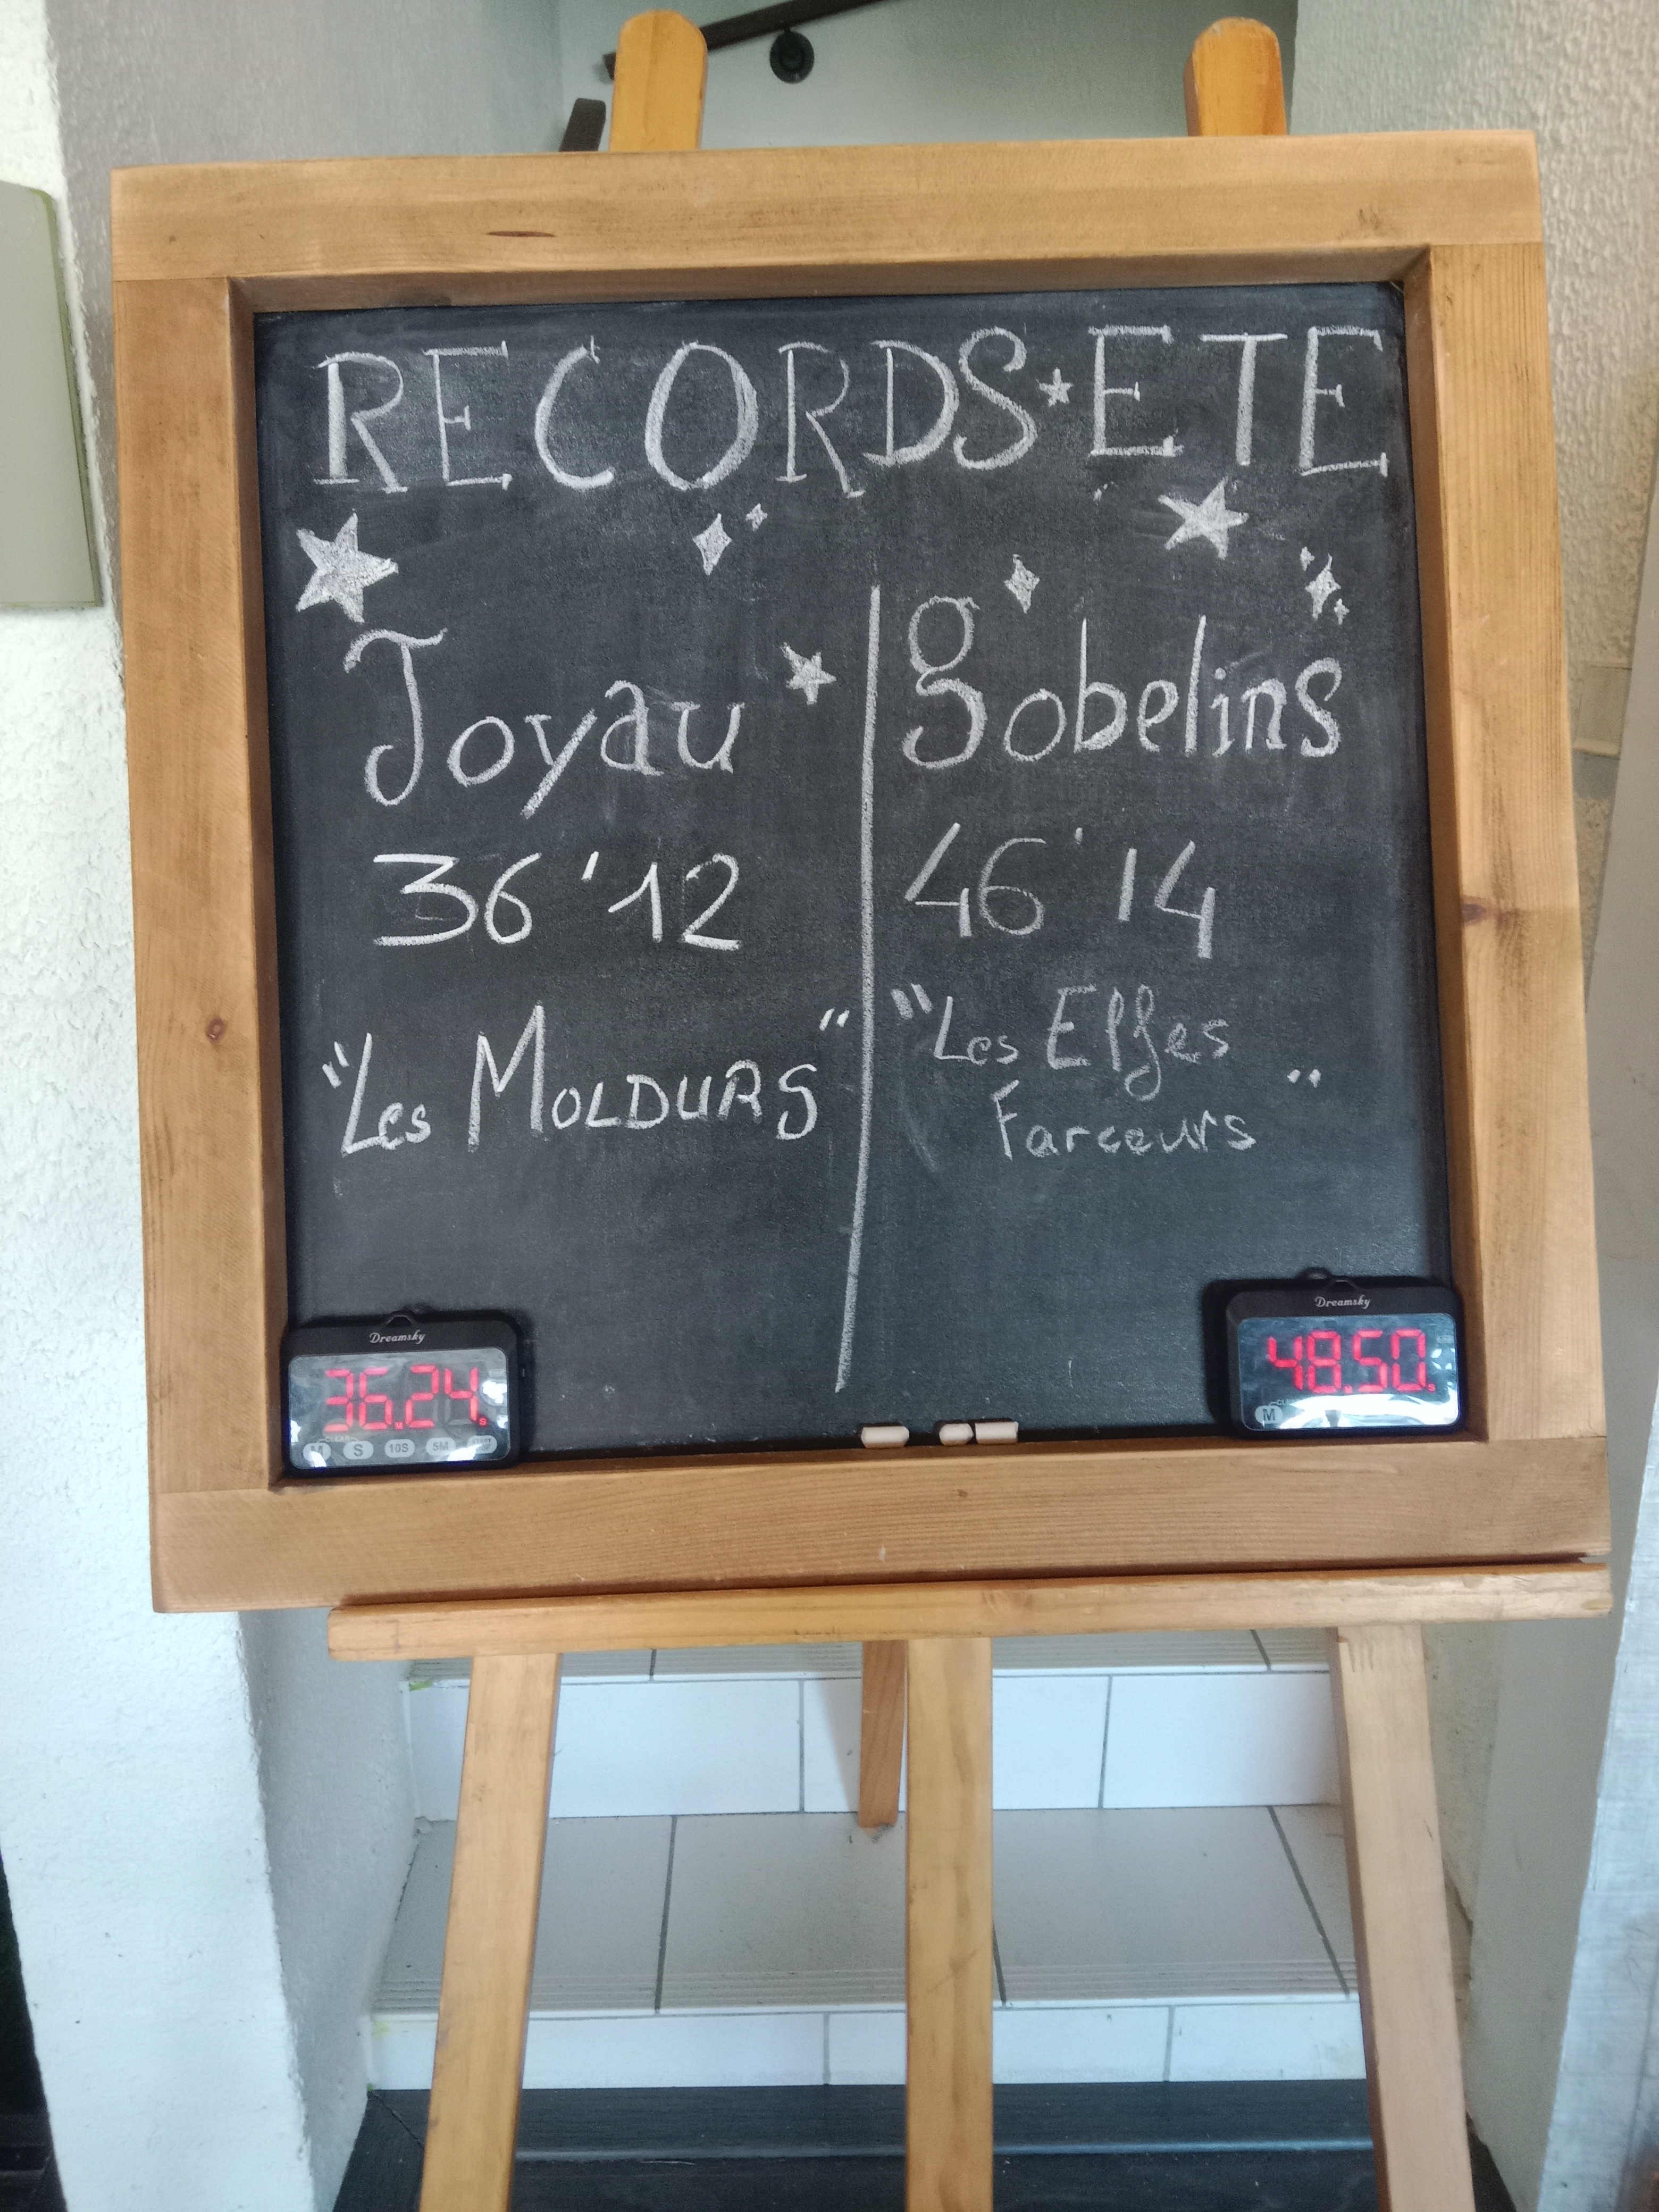 RECORDS ETE
Joyau
36'12
"Les MOLDURS"
Gobelins
46'14
"Les Elfes
Farceurs"
Dreamsky
36.24 s
M S 10S 5M
Dreamsky
48.50 s
M